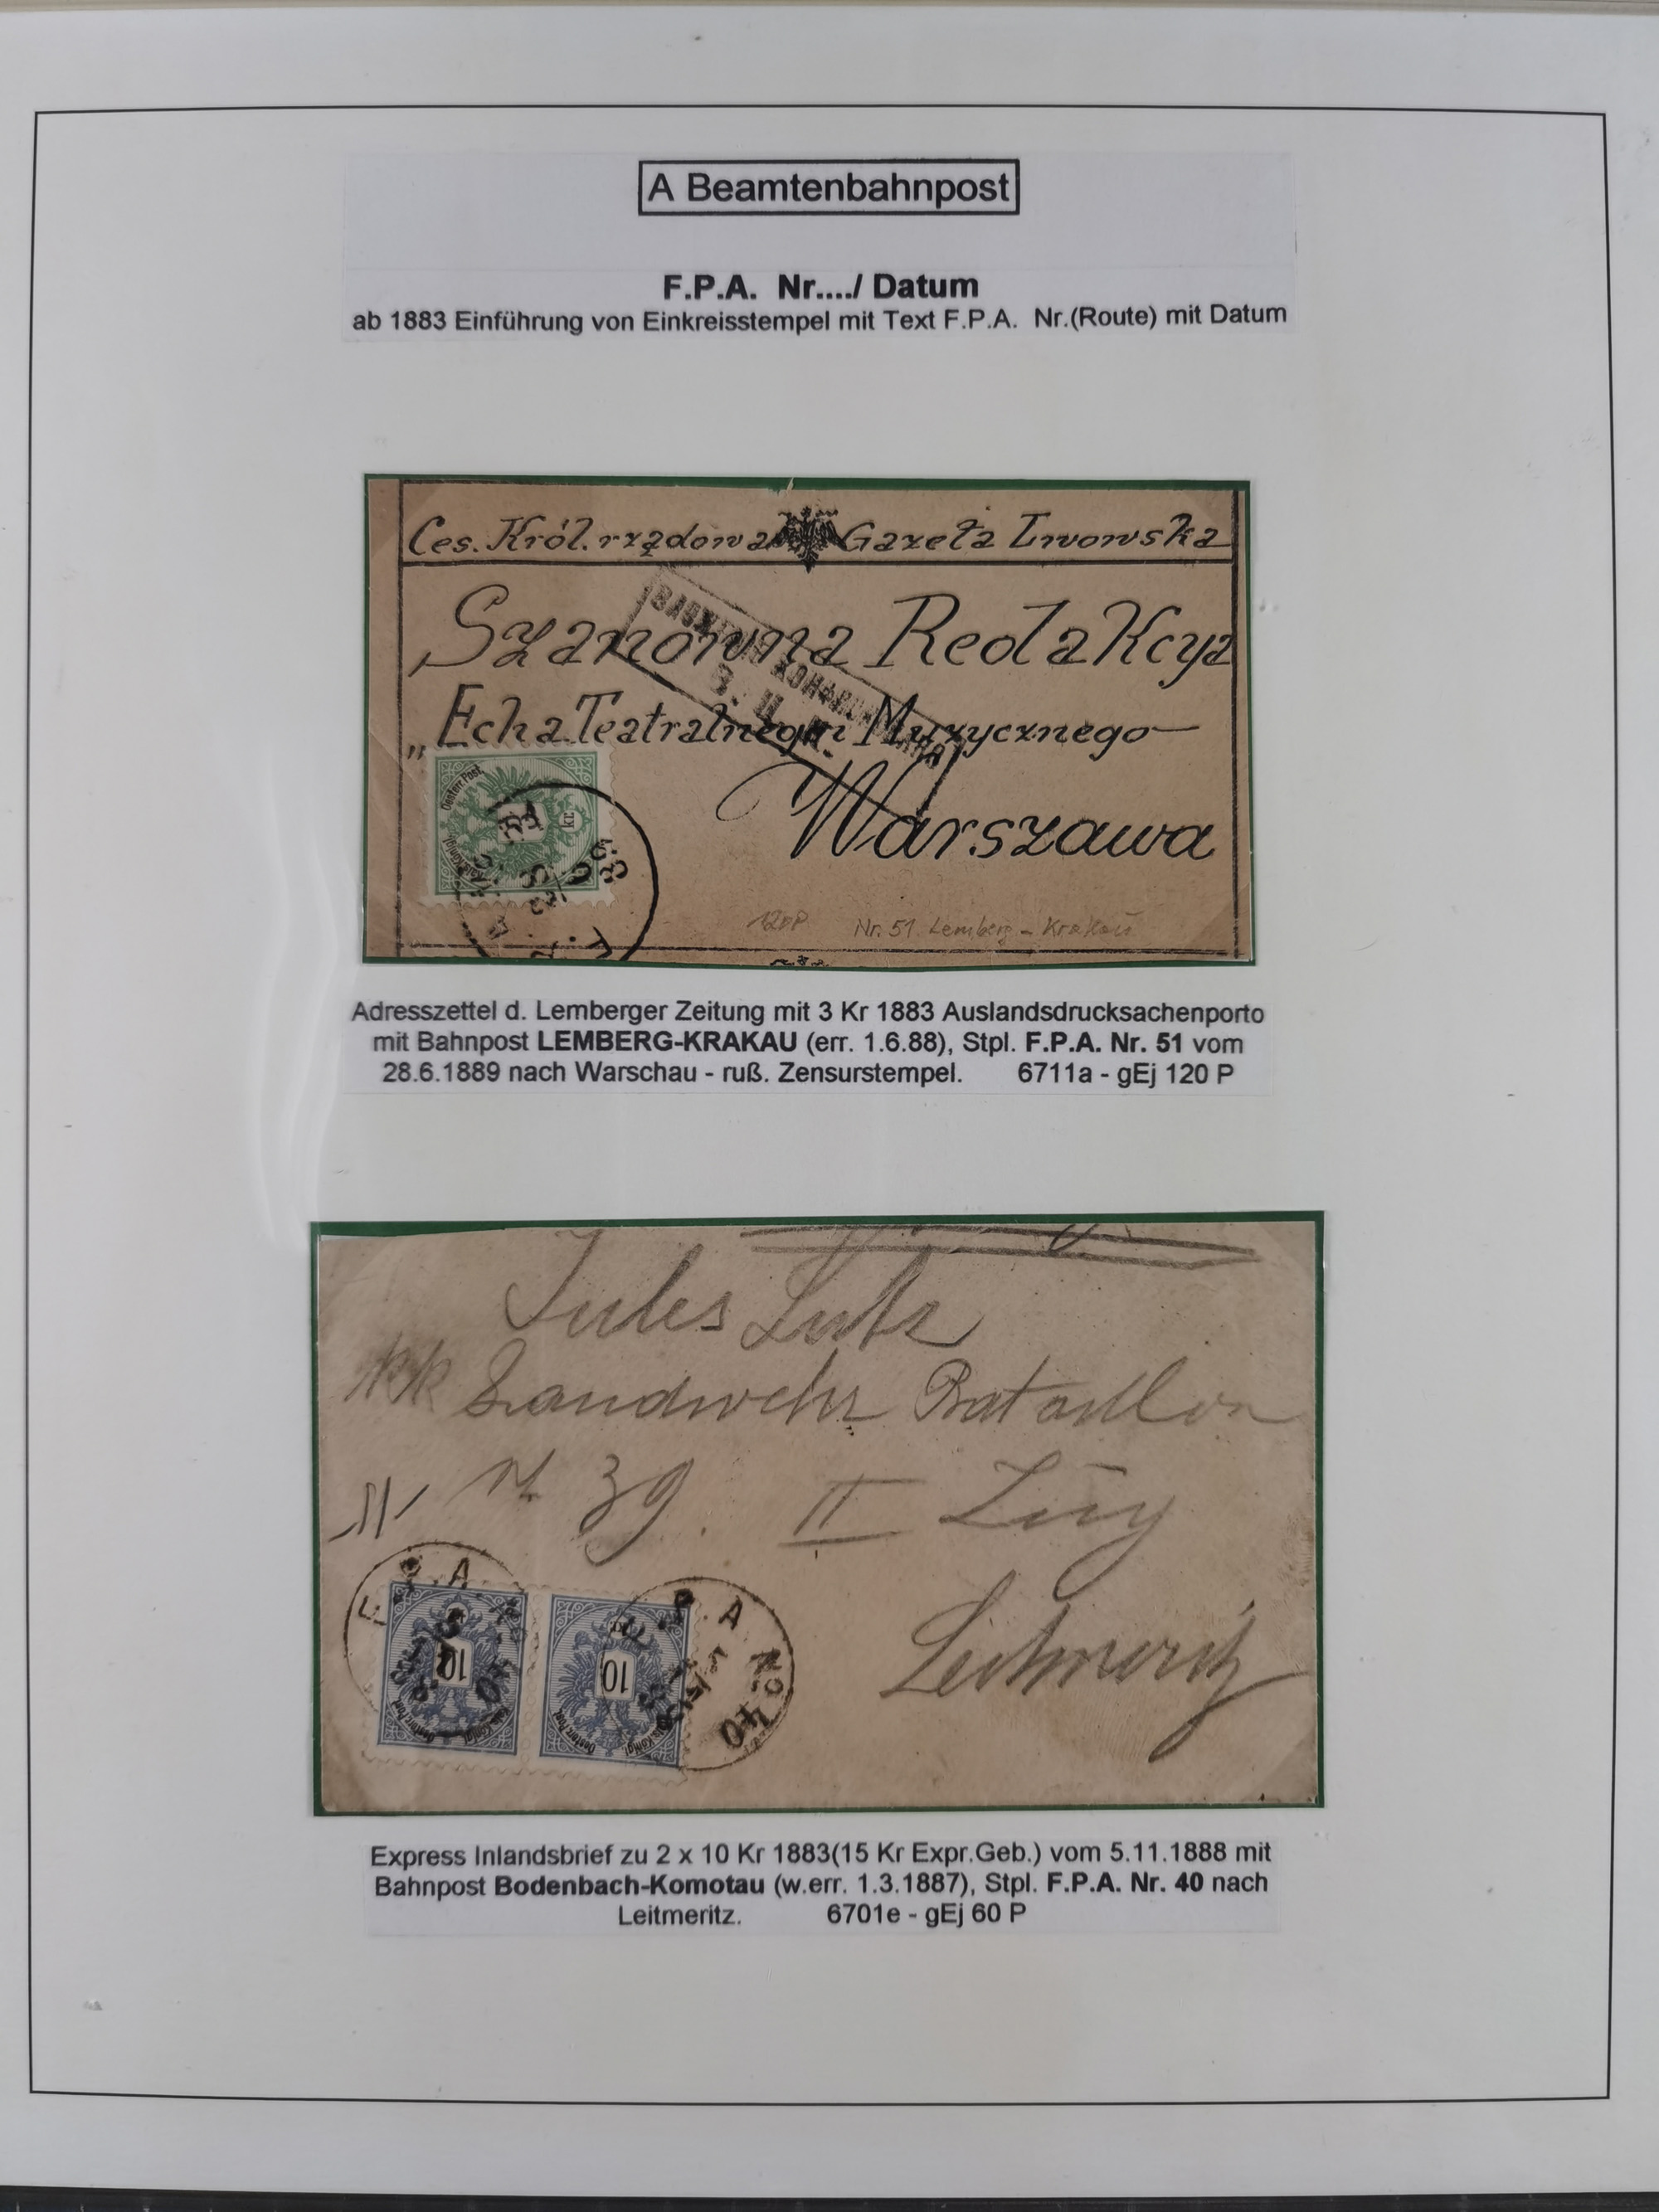 A Beamtenbahnpost
F.P.A. Nr..../ Datum
ab 1883 Einführung von Einkreisstempel mit Text F.P.A. Nr.(Route) mit Datum
Ces. Król. rządowa Gazeta Lwowska
Szanowna Redakcya
„Echa Teatralnego i Muzycznego
Warszawa
120P Nr. 51 Lemberg - Krakau
Adresszettel d. Lemberger Zeitung mit 3 Kr 1883 Auslandsdrucksachenporto
mit Bahnpost LEMBERG-KRAKAU (err. 1.6.88), Stpl. F.P.A. Nr. 51 vom
28.6.1889 nach Warschau - ruß. Zensurstempel. 6711a - gEj 120 P
Jules Lutz
KK Landwehr Bataillon
Nr 39. II Zug
Leitmeritz
F.P.A. No 40
10
10
F.P.A. No 40
Express Inlandsbrief zu 2 x 10 Kr 1883(15 Kr Expr.Geb.) vom 5.11.1888 mit
Bahnpost Bodenbach-Komotau (w.err. 1.3.1887), Stpl. F.P.A. Nr. 40 nach
Leitmeritz. 6701e - gEj 60 P